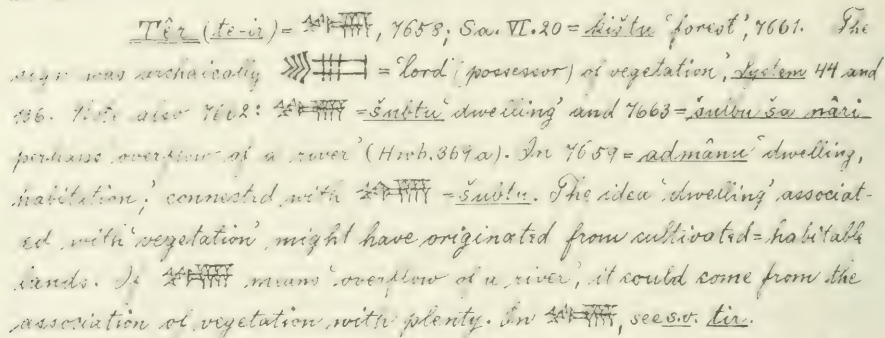 Têr (te-ir) = 𒌁, 7658; Sa. VI. 20 = ḳištu 'forest', 7661. The
sign was archaically = 'lord (possessor) of vegetation', System 44 and
136. Note also 7662: 𒌁 = šubtu 'dwelling' and 7663 = šulbu ša nâri
perhaps 'overflow of a river' (Hwb. 369 a). In 7659 = admânu 'dwelling,
habitation', connected with 𒌁 = šubtu. The idea 'dwelling' associat-
ed with 'vegetation' might have originated from cultivated = habitable
lands. If 𒌁 means 'overflow of a river', it could come from the
association of vegetation with plenty. On 𒌁, see s.v. tir.